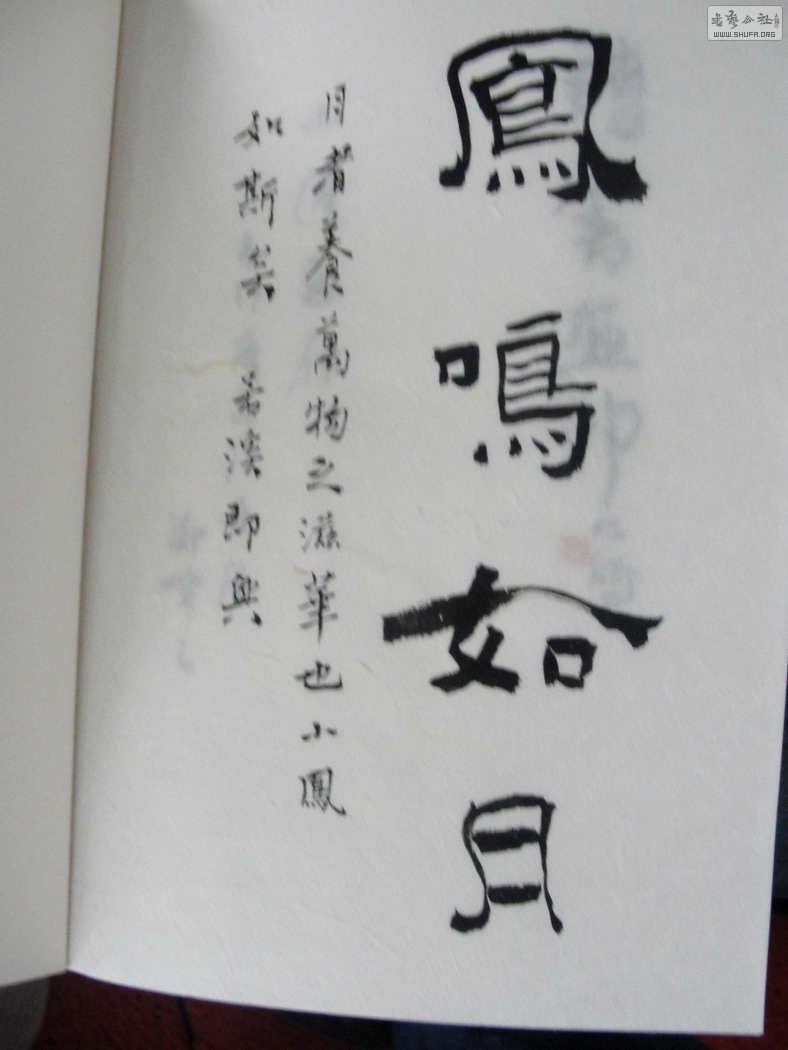 鳳鳴如月
月者養萬物之滋華也小鳳
如斯矣 若溪即興
書藝公社
WWW.SHUFA.ORG